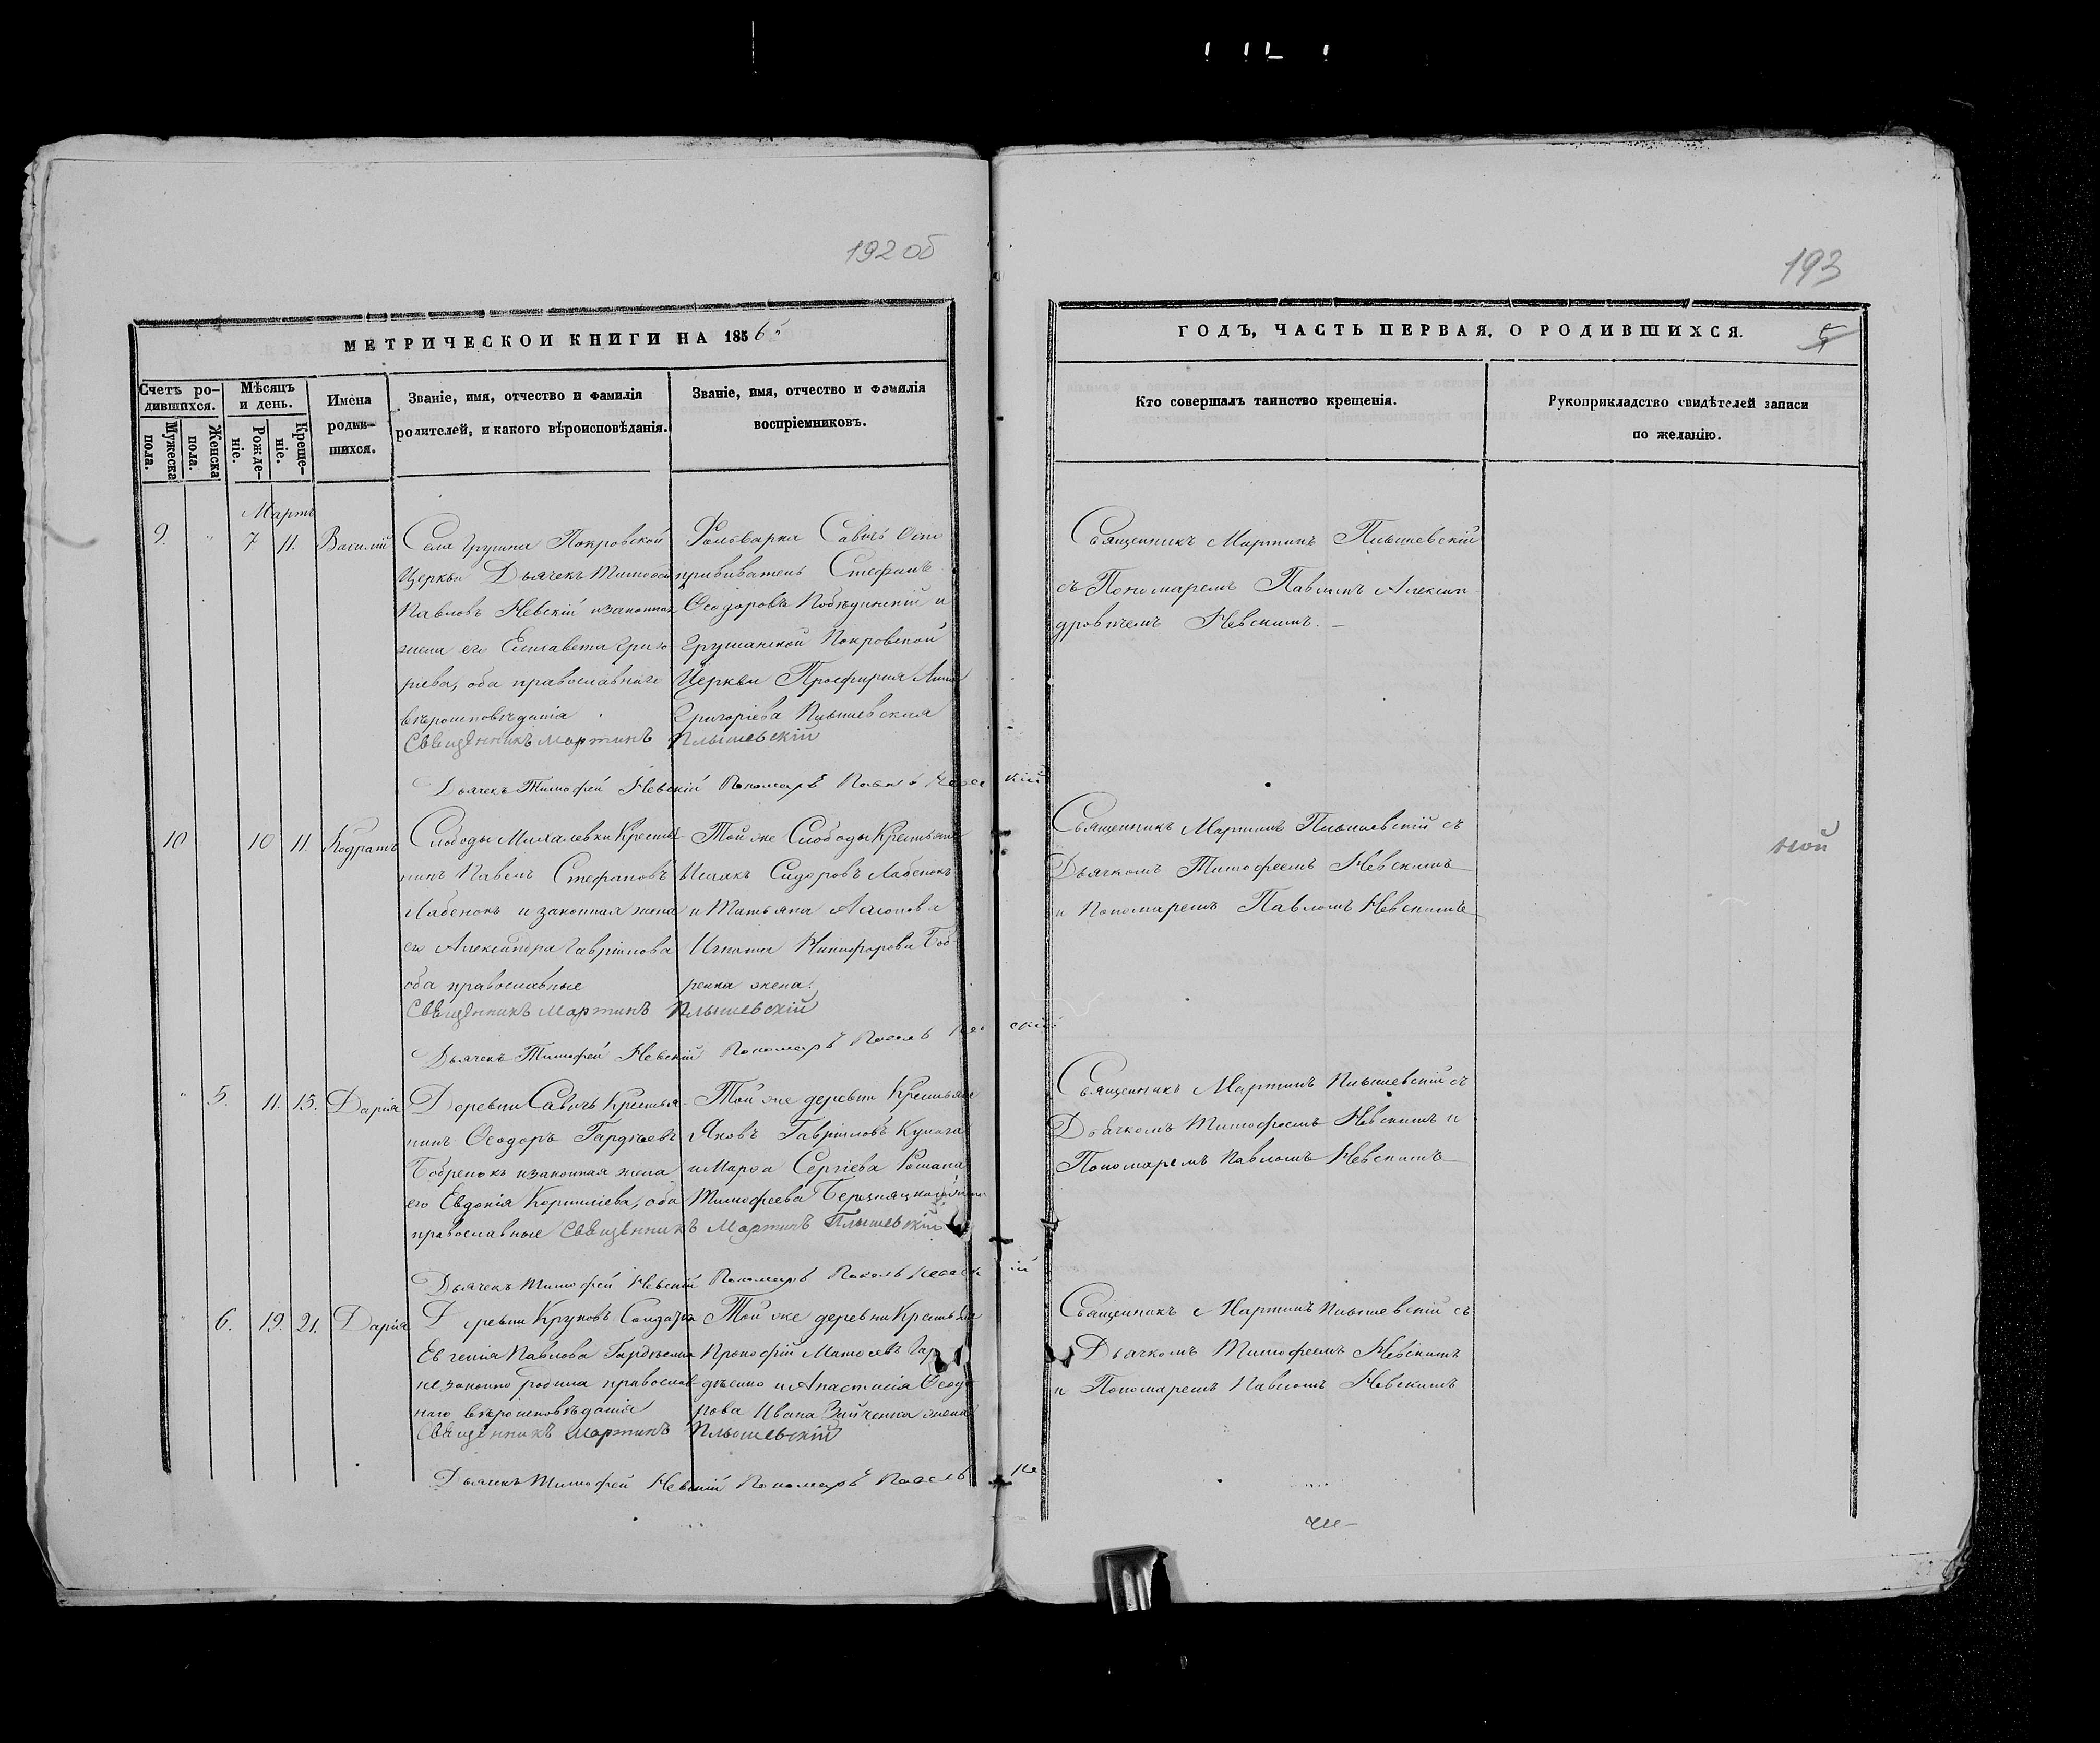 192 об
МЕТРИЧЕСКОЙ КНИГИ НА 1865
Счетъ ро-
дившихся.
Мужеска пола.
Женска пола.
Мѣсяцъ
и день.
Рожде-
ніе.
Креще-
ніе.
Имена
родив-
шихся.
Званіе, имя, отчество и фамилія
родителей, и какого вѣроисповѣданія.
Званіе, имя, отчество и фамилія
воспріемниковъ.
Мартъ
9. " 7. 11. Василій
Села Грушки Покровской
Церкви Дьячекъ Тимофей
Павловъ Невскій и законная
жена его Елисавета Григо
ріева, оба православнаго
вѣроисповѣданія
Фольварка Савичъ
Стефанъ
Ѳеодоровъ Побѣдинскій и
Грушанской Покровской
Церкви Просфирня Анна
Григоріева Плышевская
Священникъ Мартинъ Плышевскій
Дьячекъ Тимофей Невскій Пономарь Павелъ Невскій
10 10 11. Кодратъ
Слободы Михалевки Крестья
нинъ Павелъ Стефановъ
Лабенокъ и законная жена
его Александра Гавріилова
оба православные
Той же Слободы Крестьяне
Исаакъ Сидоровъ Лабенокъ
и Татьяна
Игната Никифорова Боб-
ренка жена.
Священникъ Мартинъ Плышевскій
Дьячекъ Тимофей Невскій Пономарь Павелъ Невскій
" 5. 11. 15. Дарія
Деревни Савичъ Крестья
нинъ Ѳеодоръ Гордѣевъ
Бобренокъ и законная жена
его Евдокія Корниліева, оба
православные
Той же деревни Крестьяне
Яковъ Гавріиловъ Кулага
и Марѳа Сергіева Романа
Тимофеева
Священникъ Мартинъ Плышевскій
Дьячекъ Тимофей Невскій Пономарь Павелъ Невскій
6. 19. 21. Дарія
Деревни Круковъ Солдатка
Евгенія Павлова
незаконно родила православ
наго вѣроисповѣданія
Той же деревни Крестьяне
Прокофій
и Анастасія Ѳеодо
рова Ивана Зайченка жена
Священникъ Мартинъ Плышевскій
Дьячекъ Тимофей Невскій Пономарь Павелъ Не
193
ГОДЪ, ЧАСТЬ ПЕРВАЯ, О РОДИВШИХСЯ.
5
Кто совершалъ таинство крещенія.
Рукоприкладство свидѣтелей записи
по желанію.
Священникъ Мартинъ Плышевскій
съ Пономаремъ Павломъ Алексан
дровичемъ Невскимъ.
Священникъ Мартинъ Плышевскій съ
Дьячкомъ Тимофеемъ Невскимъ
и Пономаремъ Павломъ Невскимъ
ной
Священникъ Мартинъ Плышевскій съ
Дьячкомъ Тимофеемъ Невскимъ и
Пономаремъ Павломъ Невскимъ
Священникъ Мартинъ Плышевскій съ
Дьячкомъ Тимофеемъ Невскимъ
и Пономаремъ Павломъ Невскимъ